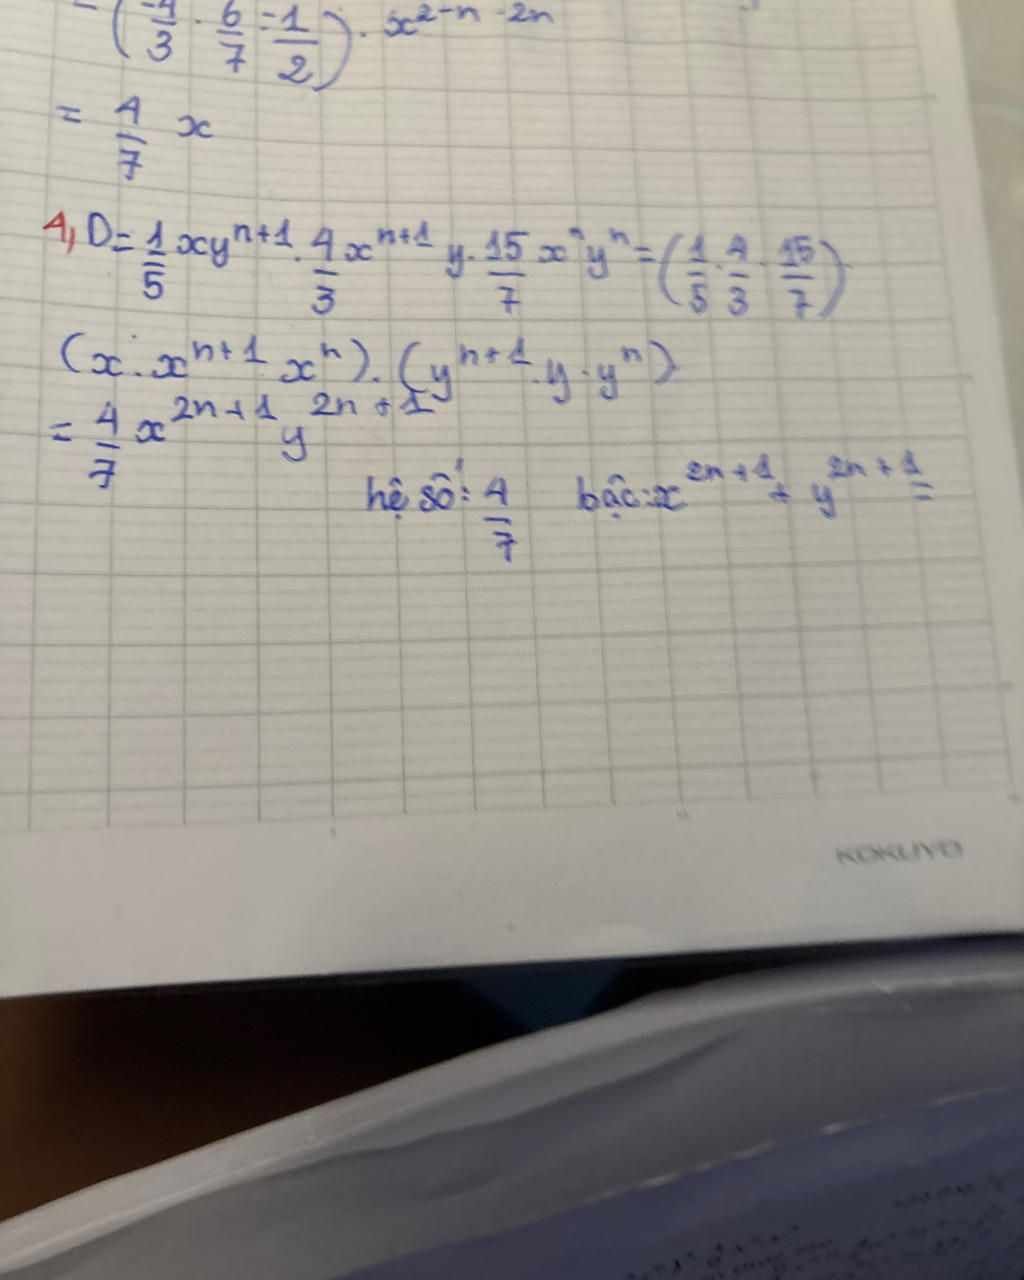 = (-4/3 · 6/7 = 1/2) · x^{2-n-2n}
= 4/7 x
4, D = 1/5 xy^{n+1} · 4/3 x^{n+1} y · 15/7 x^n y^n = (1/5 · 4/3 · 15/7) ·
(x · x^{n+1} x^n) · (y^{n+1} · y · y^n)
= 4/7 x^{2n+1} y^{2n+1}
hệ số: 4/7 bậc: x^{2n+1} + y^{2n+1} =
KOKUYO